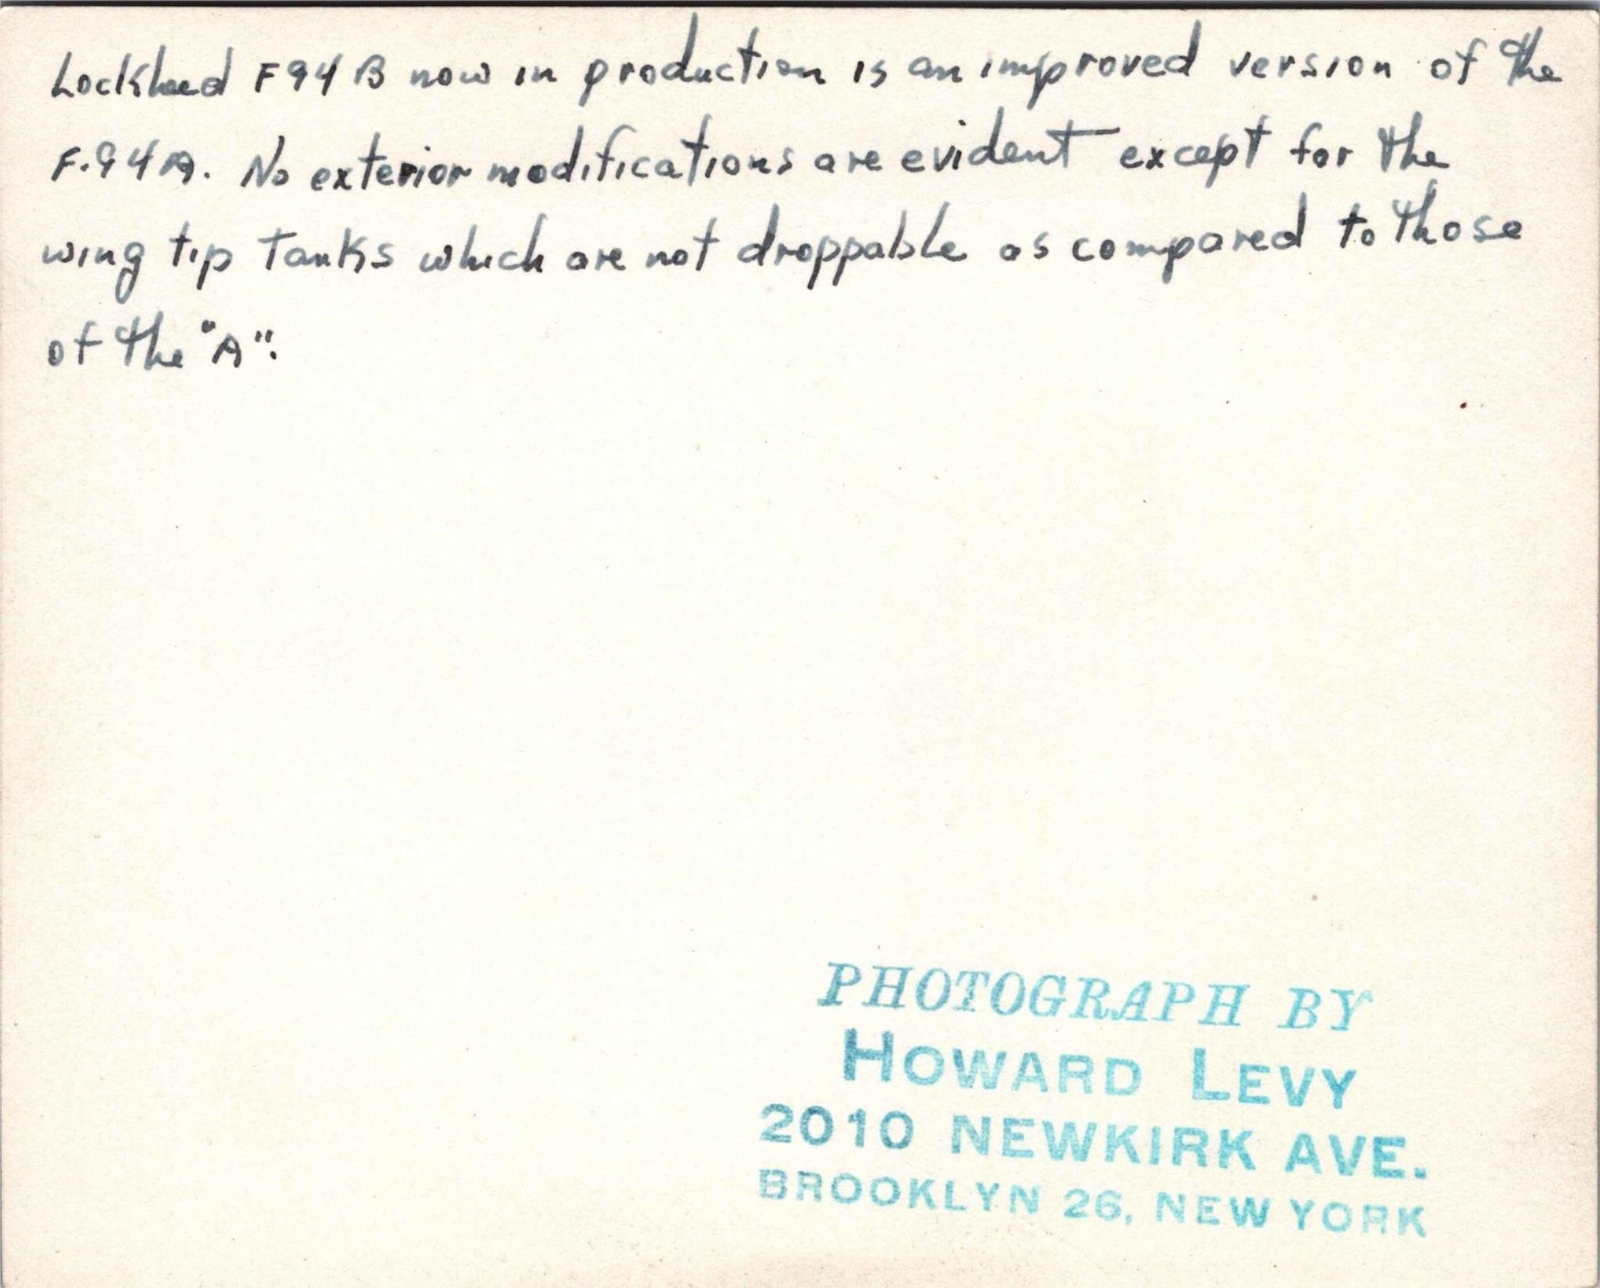 Lockheed F94B now in production is an improved version of the
F.94A. No exterior modifications are evident except for the
wing tip tanks which are not droppable as compared to those
of the "A".
PHOTOGRAPH BY
HOWARD LEVY
2010 NEWKIRK AVE.
BROOKLYN 26, NEW YORK